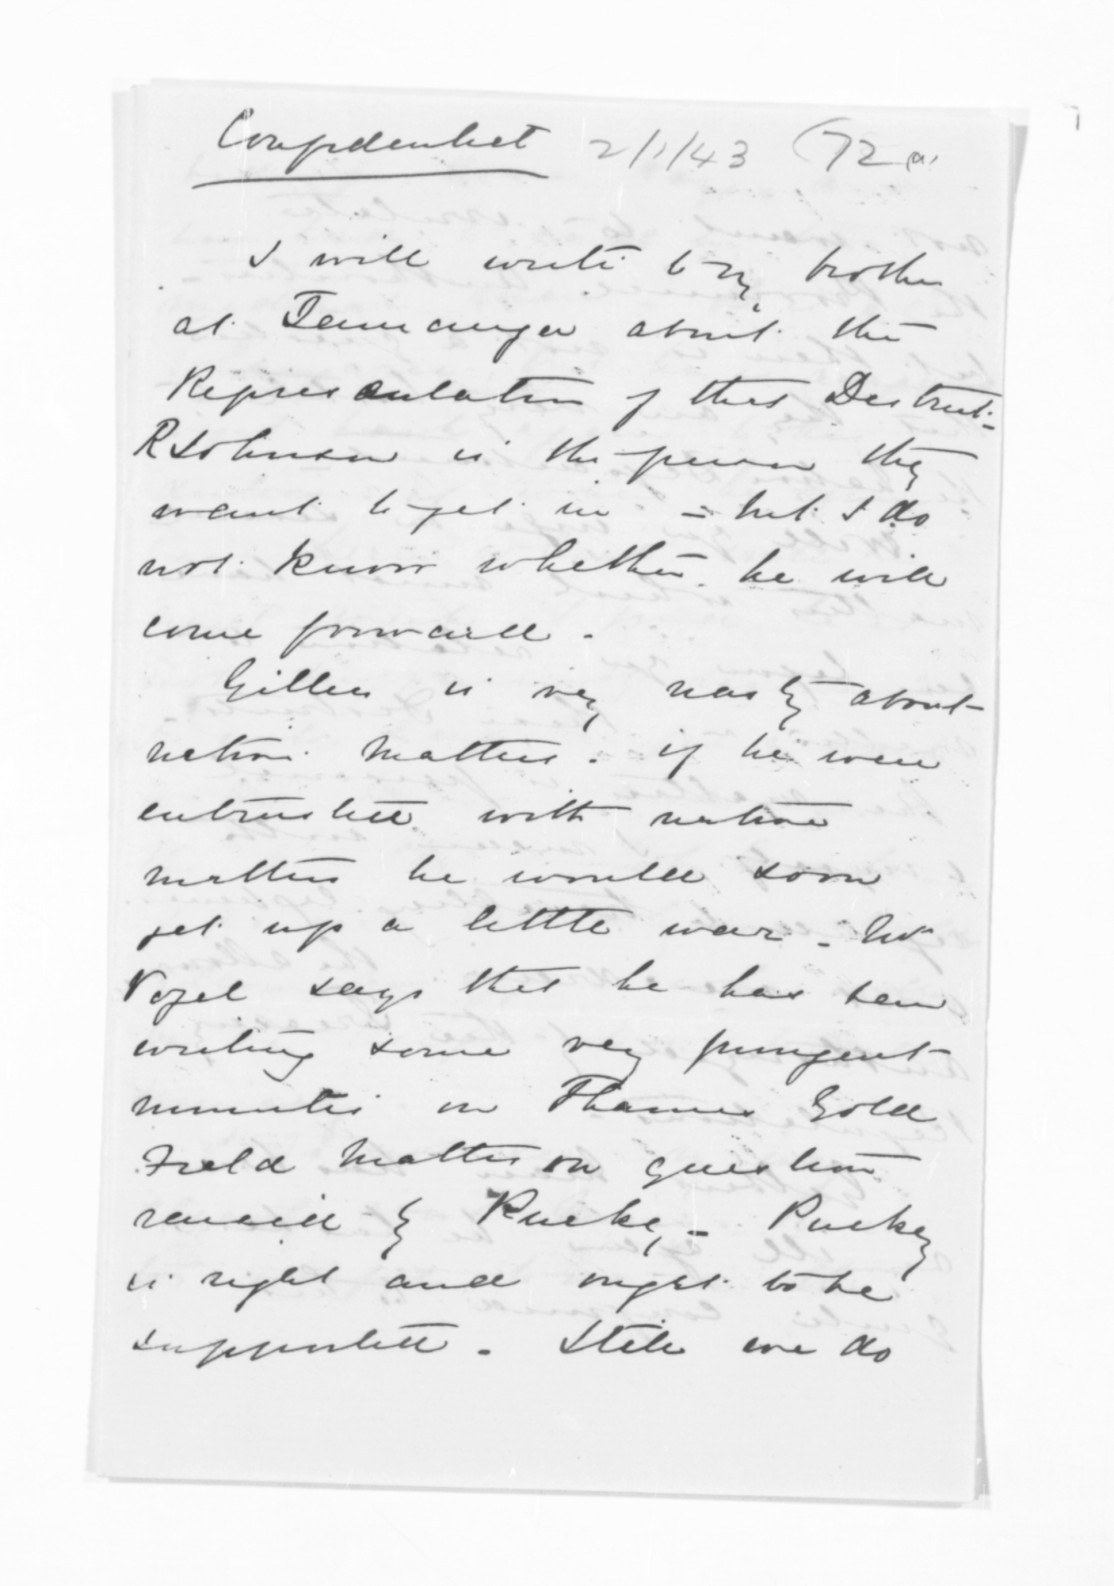 Confidential 2/1/43 (72a
I will write to my brother
at Tauranga about the
Representation of that District -
R Johnson is the person they
want to get in - but I do
not know whether he will
come forward.
Gillies is very nasty about
native matters. if he were
entrusted with native
matters he would soon
get up a little war. Mr
Vogel says that he has been
writing some very pungent
minutes on Thames Gold
Field Matters on question
raised by Puckey - Puckey
is right and ought to be
supported. Still we do